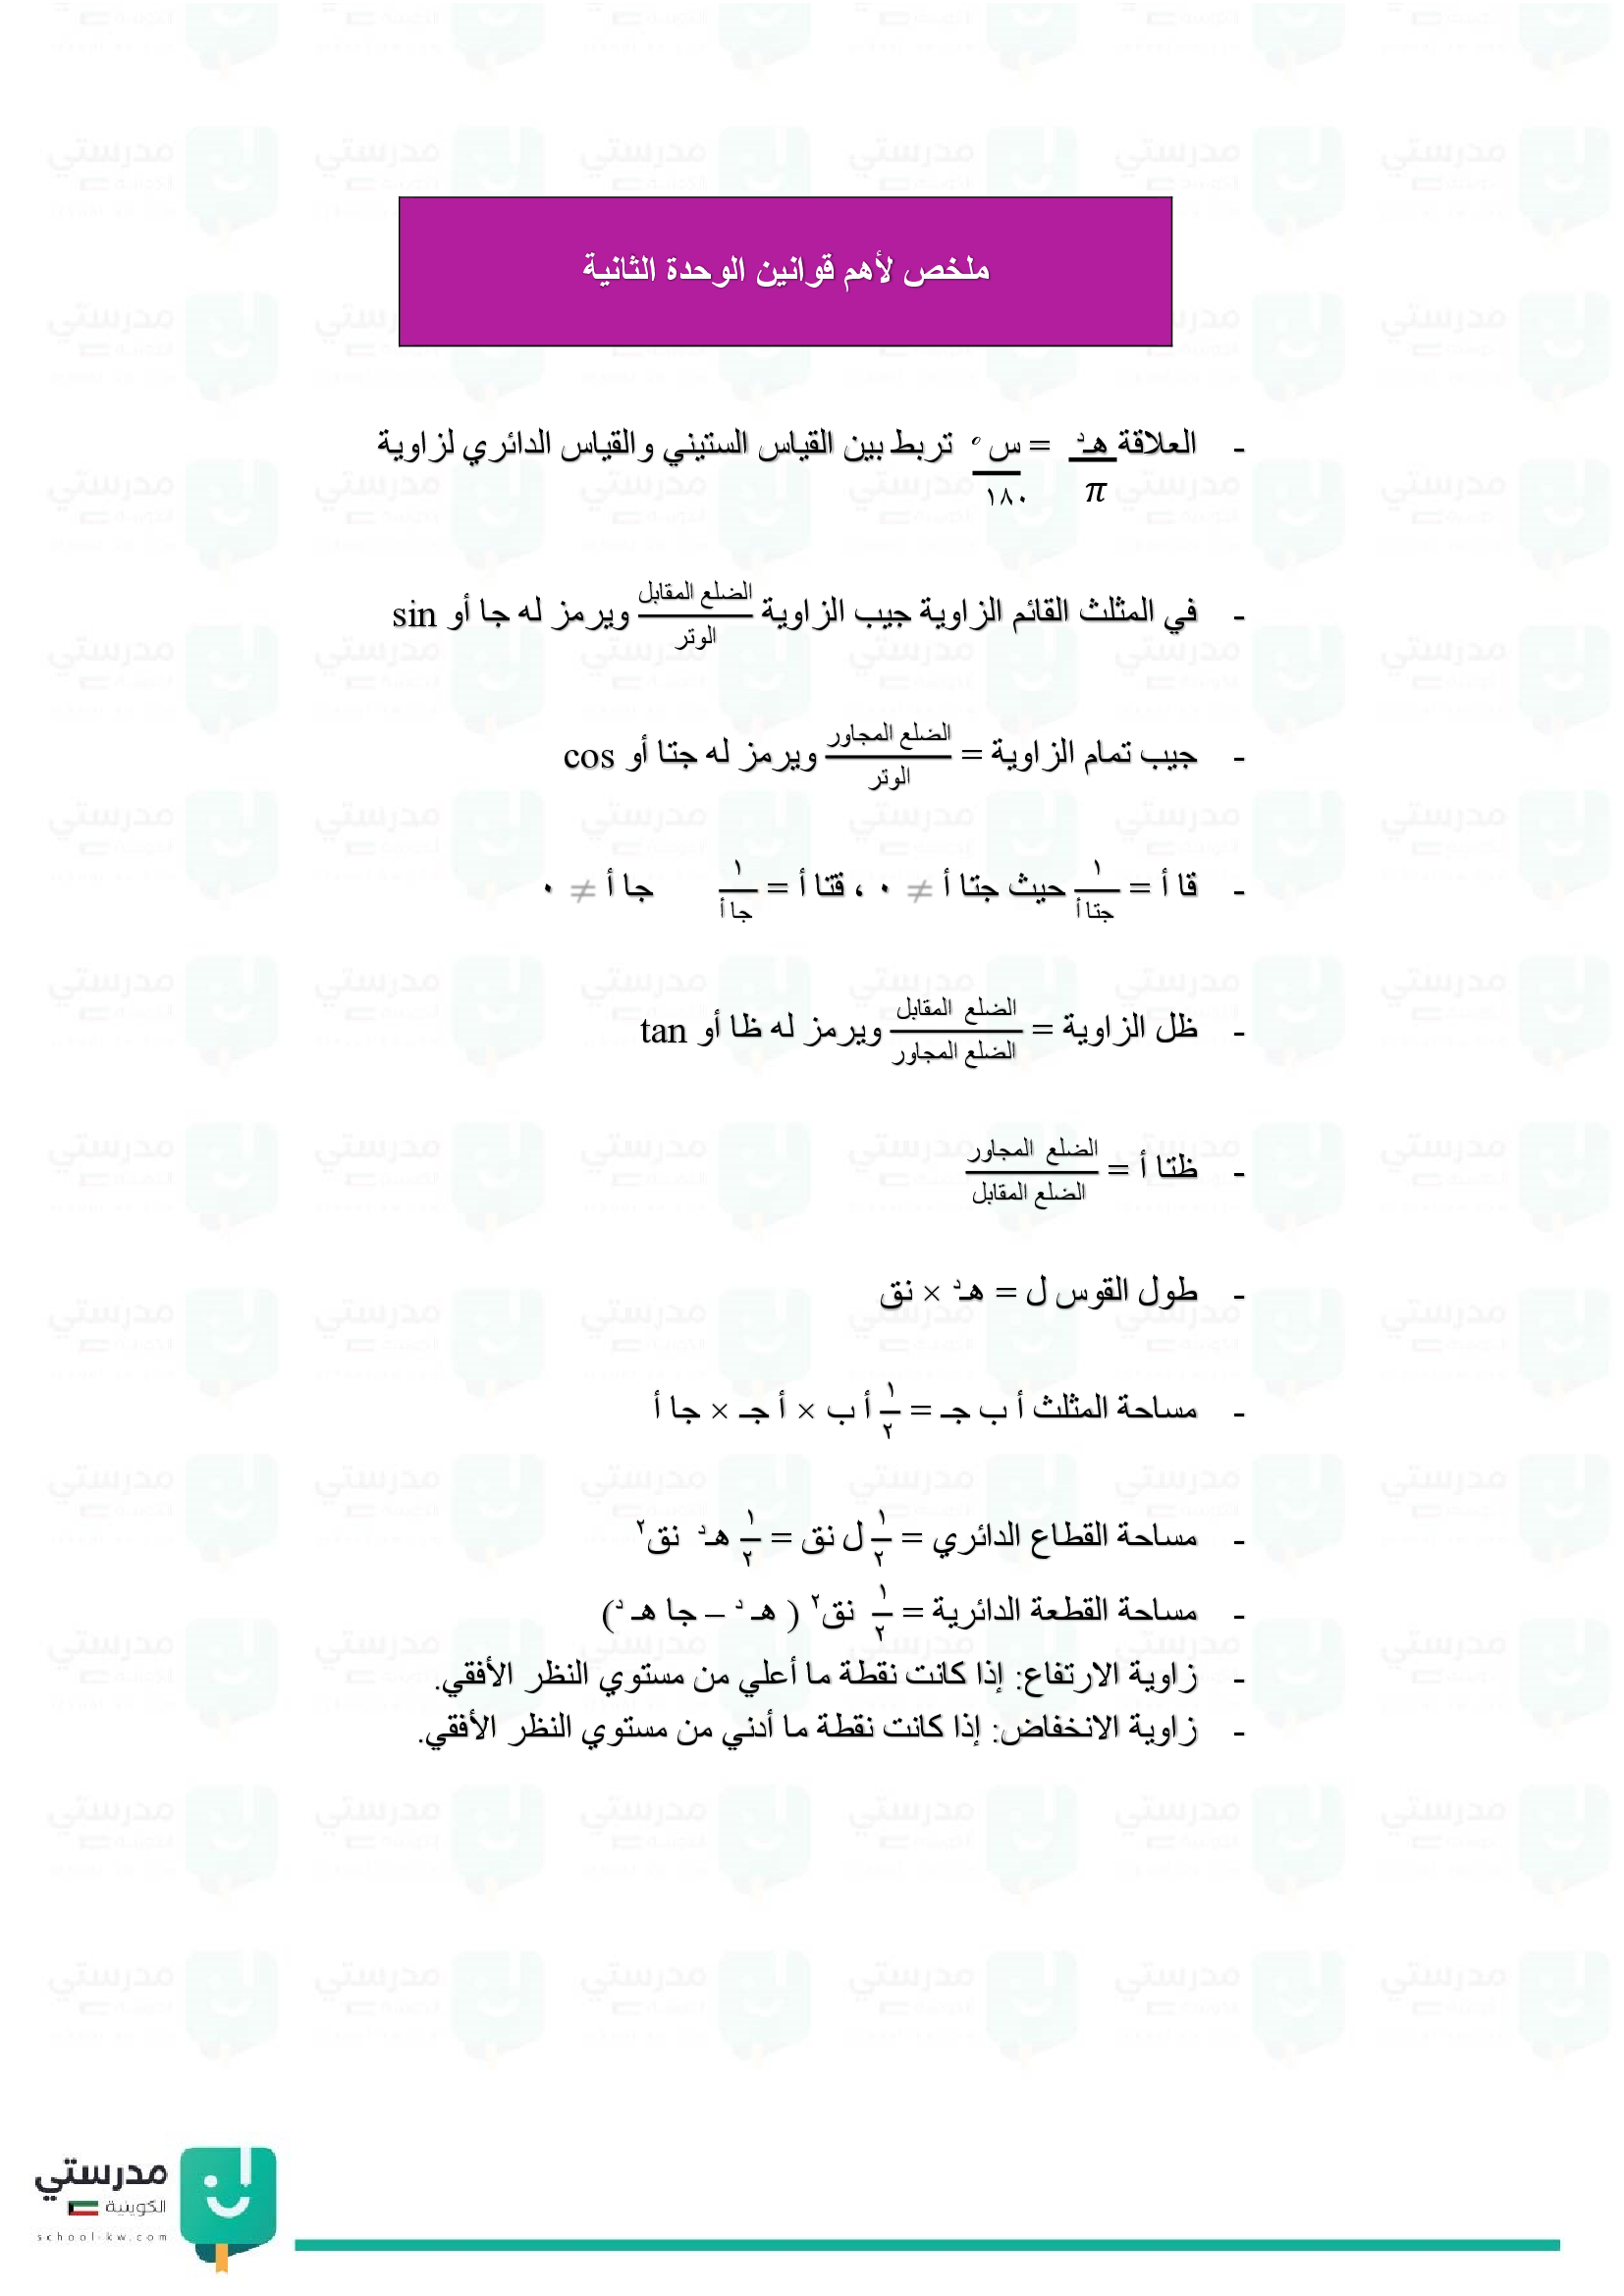 ملخص لأهم قوانين الوحدة الثانية
- العلاقة هـ د / π = س ° / ١٨٠ تربط بين القياس الستيني والقياس الدائري لزاوية
- في المثلث القائم الزاوية جيب الزاوية الضلع المقابل / الوتر ويرمز له جا أو sin
- جيب تمام الزاوية = الضلع المجاور / الوتر ويرمز له جتا أو cos
- قا أ = ١ / جتا أ حيث جتا أ ≠ ٠ ، قتا أ = ١ / جا أ جا أ ≠ ٠
- ظل الزاوية = الضلع المقابل / الضلع المجاور ويرمز له ظا أو tan
- ظتا أ = الضلع المجاور / الضلع المقابل
- طول القوس ل = هـ د × نق
- مساحة المثلث أ ب جـ = ١ / ٢ أ ب × أ جـ × جا أ
- مساحة القطاع الدائري = ١ / ٢ ل نق = ١ / ٢ هـ د نق٢
- مساحة القطعة الدائرية = ١ / ٢ نق٢ ( هـ د – جا هـ د)
- زاوية الارتفاع: إذا كانت نقطة ما أعلي من مستوي النظر الأفقي.
- زاوية الانخفاض: إذا كانت نقطة ما أدني من مستوي النظر الأفقي.
مدرستي
الكويتية
school-kw.com